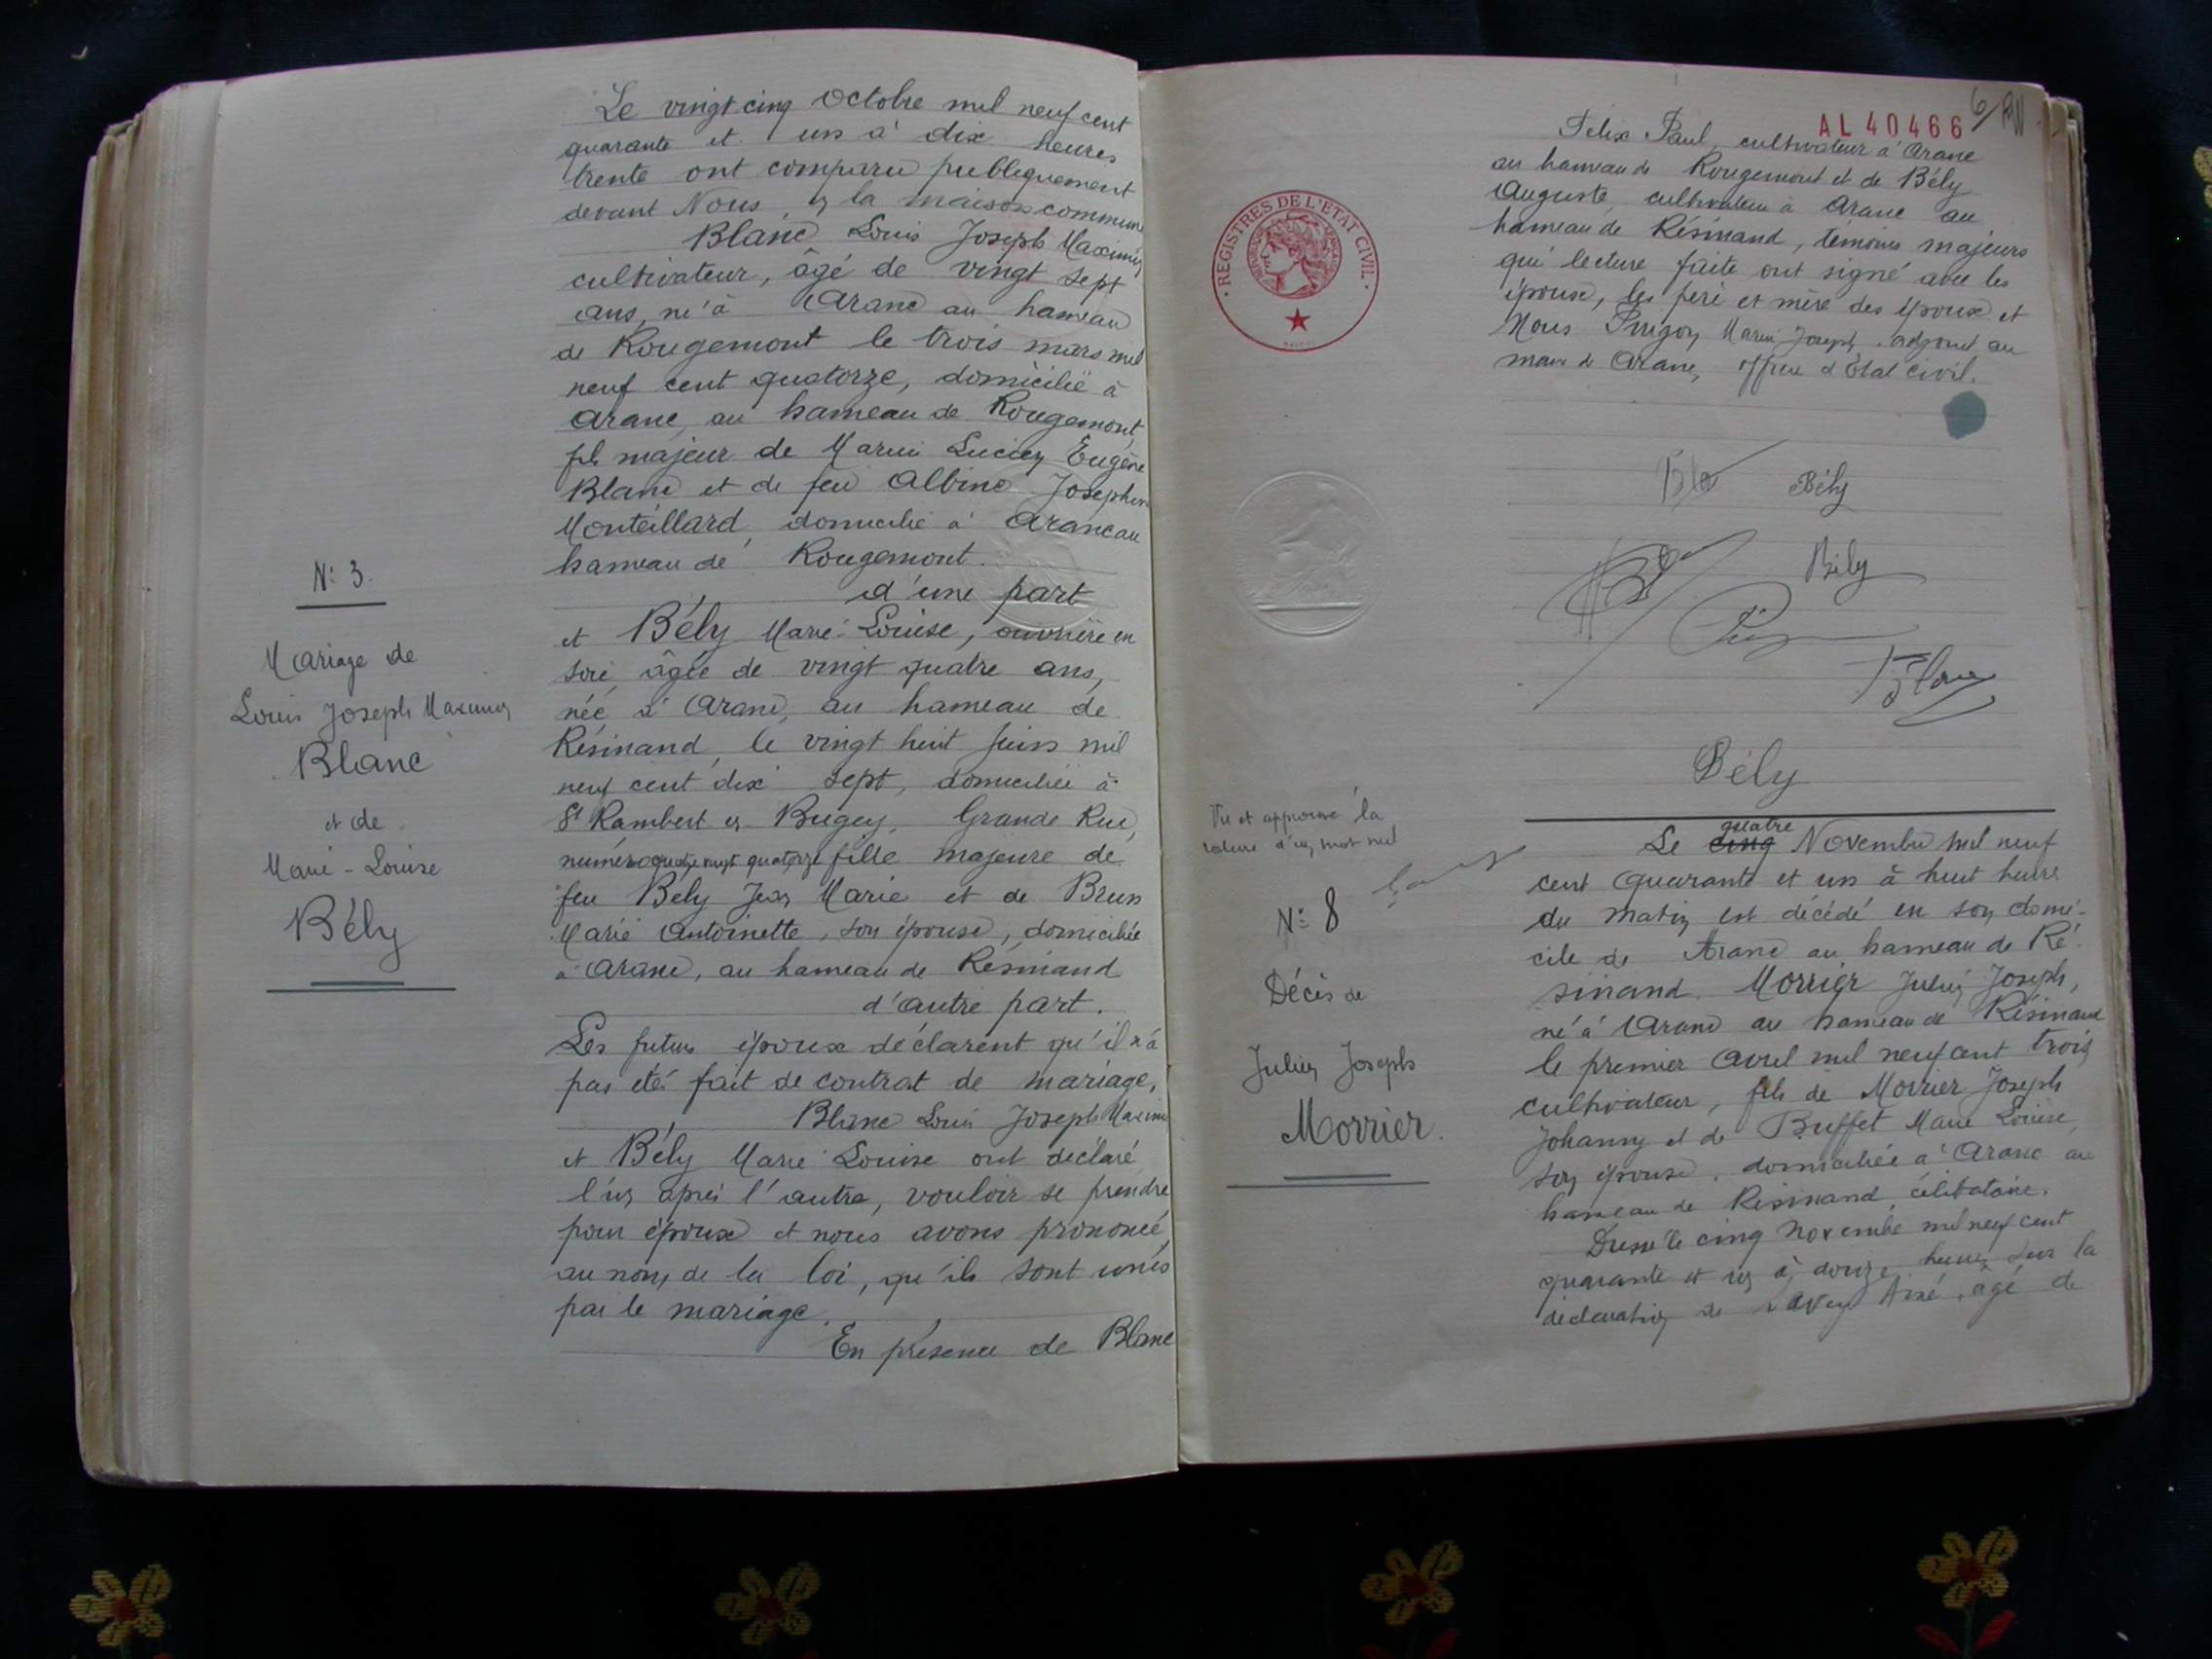 Le vingt cinq Octobre mil neuf cent
quarante et un à dix heures
trente ont comparu publiquement
devant Nous, en la maison commune
Blanc Louis Joseph Maximin
cultivateur, âgé de vingt sept
ans, né à Aranc au hameau
de Rougemont le trois mars mil
neuf cent quatorze, domicilié à
Aranc, au hameau de Rougemont,
fils majeur de Marin Lucien Eugène
Blanc et de feu Albine Josephine
Monteillard, domicilié à Aranc au
hameau de Rougemont.
d'une part
et Bély Marie-Louise, ouvrière en
soie, âgée de vingt quatre ans,
née à Aranc, au hameau de
Résinand, le vingt huit juin mil
neuf cent dix sept, domiciliée à
St Rambert en Bugey, Grande Rue,
numéro quatre vingt quatorze fille majeure de
feu Bely Jean Marie et de Brun
Marie Antoinette, son épouse, domiciliée
à Aranc, au hameau de Résinand
d'autre part.
Les futurs époux déclarent qu'il n'a
pas été fait de contrat de mariage,
Blanc Louis Joseph Maximin
et Bély Marie Louise ont déclaré
l'un après l'autre, vouloir se prendre
pour époux et nous avons prononcé,
au nom de la loi, qu'ils sont unis
par le mariage.
En présence de Blanc
N: 3.
Mariage de
Louis Joseph Maximin
Blanc
et de
Marie-Louise
Bély
AL 40466
6
Felix Paul, cultivateur à Aranc
au hameau de Rougemont et de Bély
Auguste, cultivateur à Aranc au
hameau de Résinand, témoins majeurs
qui lecture faite ont signé avec les
époux, les père et mère des époux et
Nous Marin Joseph, adjoint au
maire d'Aranc, officier d'État civil.
REGISTRES DE L'ÉTAT CIVIL
Bély
Bély
Blanc
Bély
Vu et approuvé la
rature d'un mot nul
N: 8
Décès de
Julien Joseph
Morrier.
quatre
Le cinq Novembre mil neuf
cent quarante et un à huit heures
du matin est décédé en son domi-
cile de Aranc au hameau de Ré-
sinand. Morrier Julien Joseph,
né à Aranc au hameau de Résinand
le premier Avril mil neuf cent trois
cultivateur, fils de Morrier Joseph
Johanny et de Buffet Marie Louise,
son épouse, domiciliée à Aranc au
hameau de Résinand, célibataire.
Dressé le cinq novembre mil neuf cent
quarante et un à douze heures sur la
déclaration de Aimé, âgé de